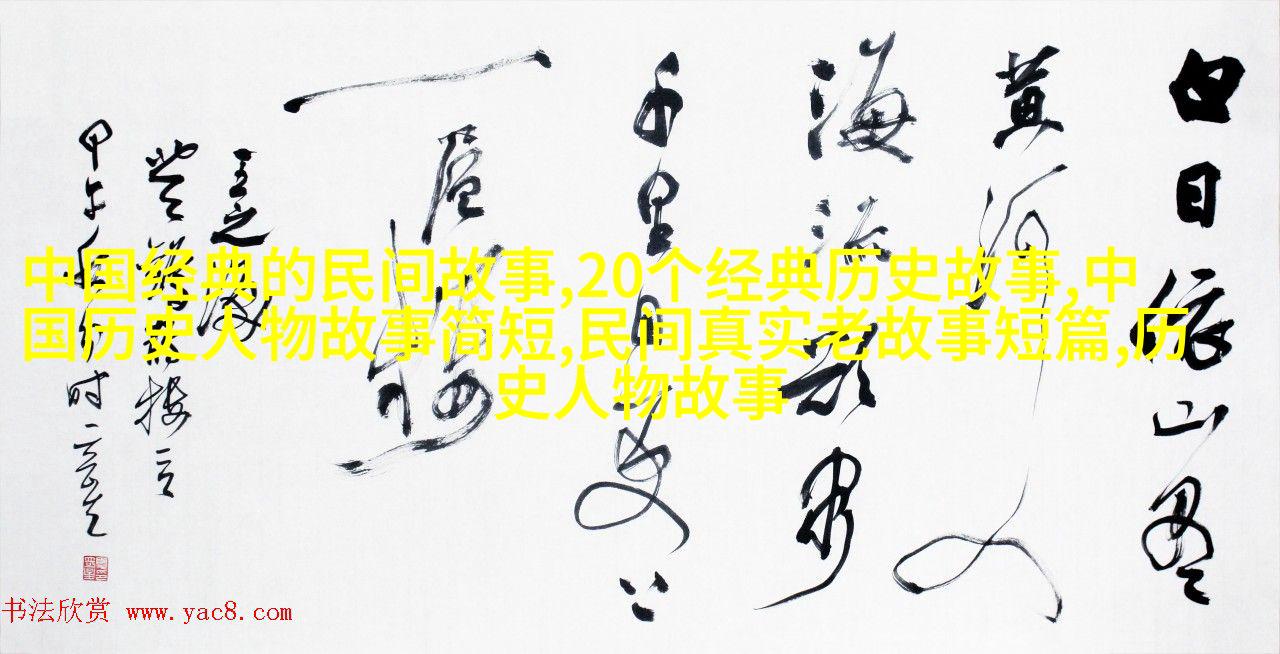 白日依山尽
黄河入
海流欲穷
千里目更上
一层楼
王之涣
登鹳雀楼
甲午
中国经典的民间故事,20个经典历史故事,中
国历史人物故事简短,民间真实老故事短篇,历
史人物故事
书法欣赏 www.yac8.com